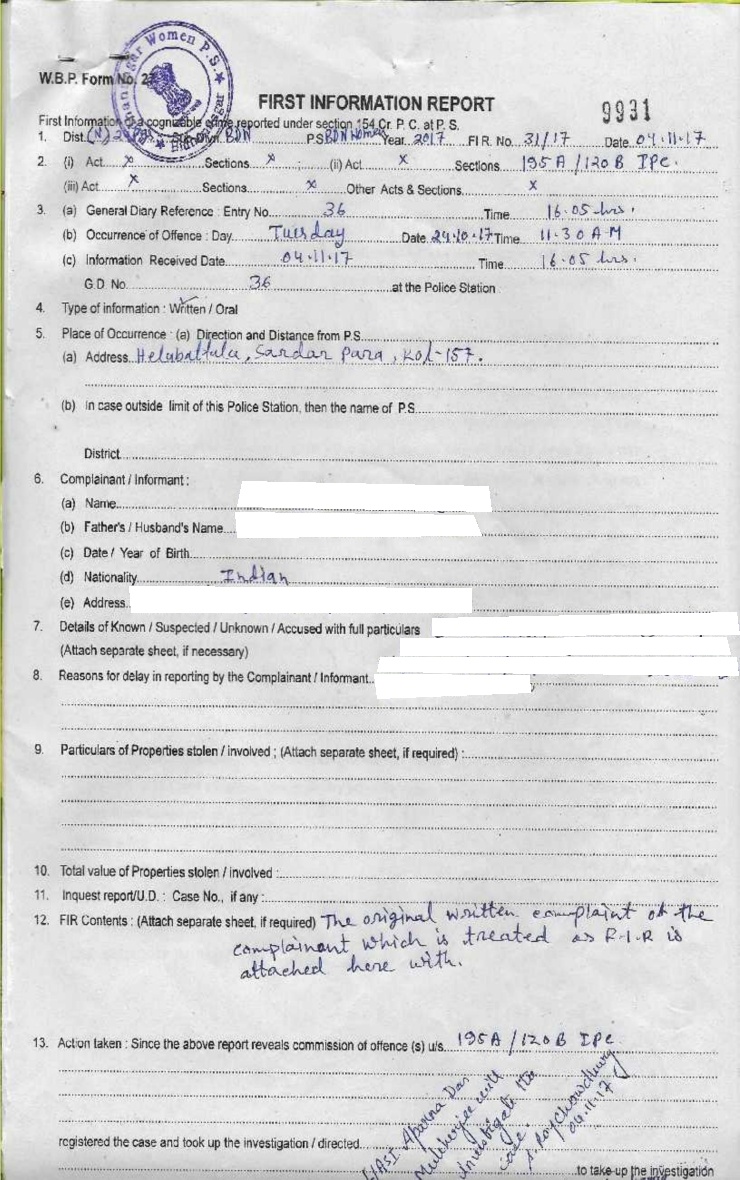 Bidhannagar Women P.S.
Bidhannagar
W.B.P. Form No. 27
FIRST INFORMATION REPORT
9931
First Information of a cognizable crime reported under section 154 Cr. P. C. at P. S.
1. Dist. (N) 24 Pgs. Sub-Divn. BDN P.S. BDN Women Year 2017 FIR. No. 31/17 Date 04.11.17
2. (i) Act x Sections x ; (ii) Act x Sections 195A/120B IPC.
(iii) Act x Sections x Other Acts & Sections x
3. (a) General Diary Reference : Entry No. 36 Time 16.05 hrs.
(b) Occurrence of Offence : Day Tuesday Date 24.10.17 Time 11.30 AM
(c) Information Received Date 04.11.17 Time 16.05 hrs.
G.D. No. 36 at the Police Station
4. Type of information : Written / Oral
5. Place of Occurrence : (a) Direction and Distance from P.S.
(a) Address Helabattala, Sardar Para, Kol-157.
(b) In case outside limit of this Police Station, then the name of P.S.
District
6. Complainant / Informant :
(a) Name
(b) Father's / Husband's Name
(c) Date / Year of Birth
(d) Nationality Indian
(e) Address
7. Details of Known / Suspected / Unknown / Accused with full particulars
(Attach separate sheet, if necessary)
8. Reasons for delay in reporting by the Complainant / Informant
9. Particulars of Properties stolen / involved ; (Attach separate sheet, if required) :
10. Total value of Properties stolen / involved :
11. Inquest report/U.D. : Case No., if any :
12. FIR Contents : (Attach separate sheet, if required) The original written complaint of the
complainant which is treated as F.I.R is
attached here with.
13. Action taken : Since the above report reveals commission of offence (s) u/s. 195A/120B IPC
L/ASI Aparna Das
Mukherjee will
investigate the
case.
A. Roy Chowdhury
04.11.17
registered the case and took up the investigation / directed
to take up the investigation